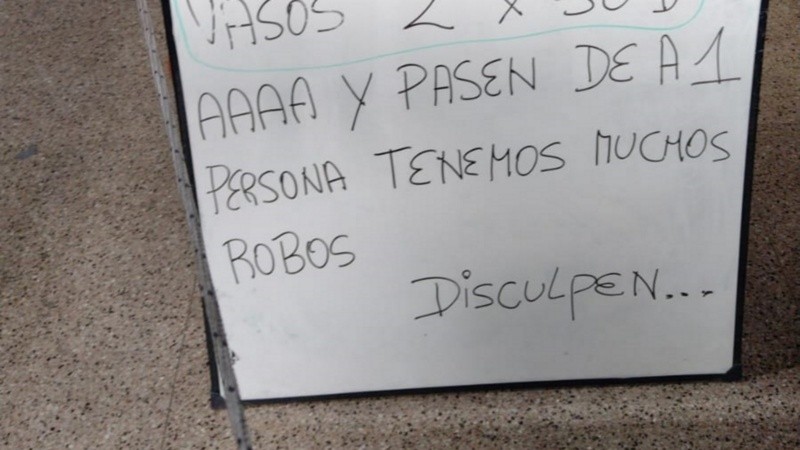 VASOS 2 X
AAAA Y PASEN DE A 1
PERSONA TENEMOS MUCHOS
ROBOS
DISCULPEN...